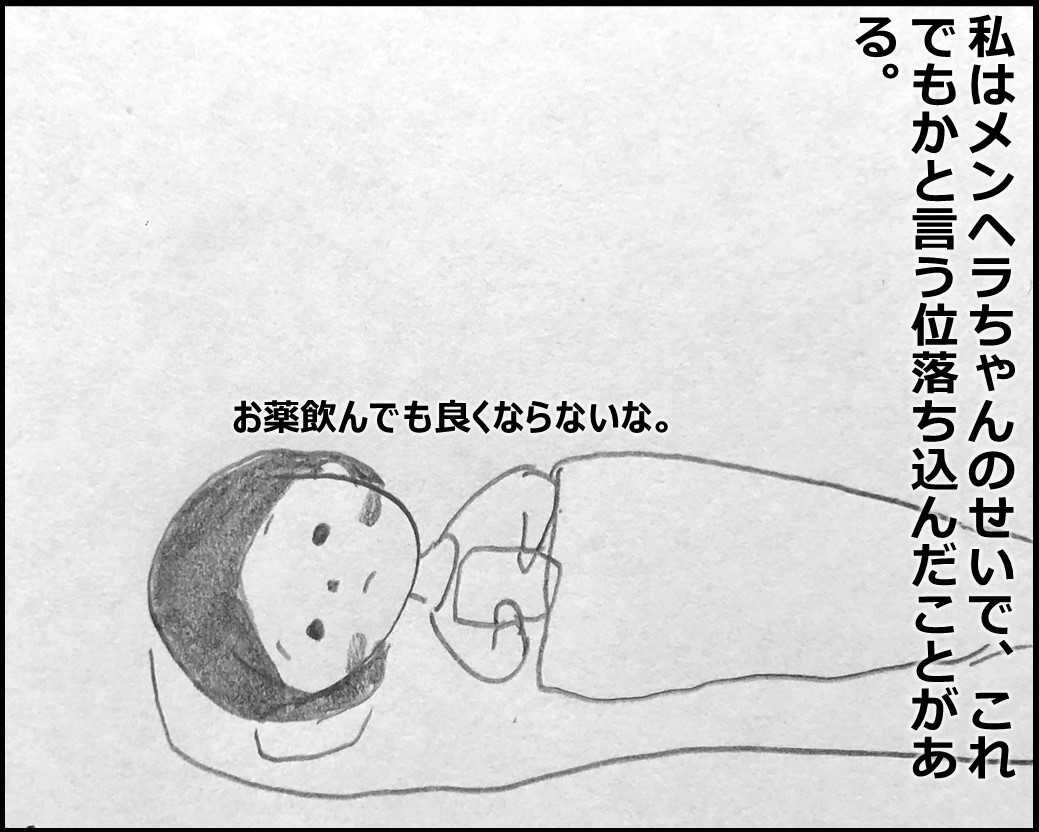 私はメンヘラちゃんのせいで、これ
でもかと言う位落ち込んだことがあ
る。
お薬飲んでも良くならないな。